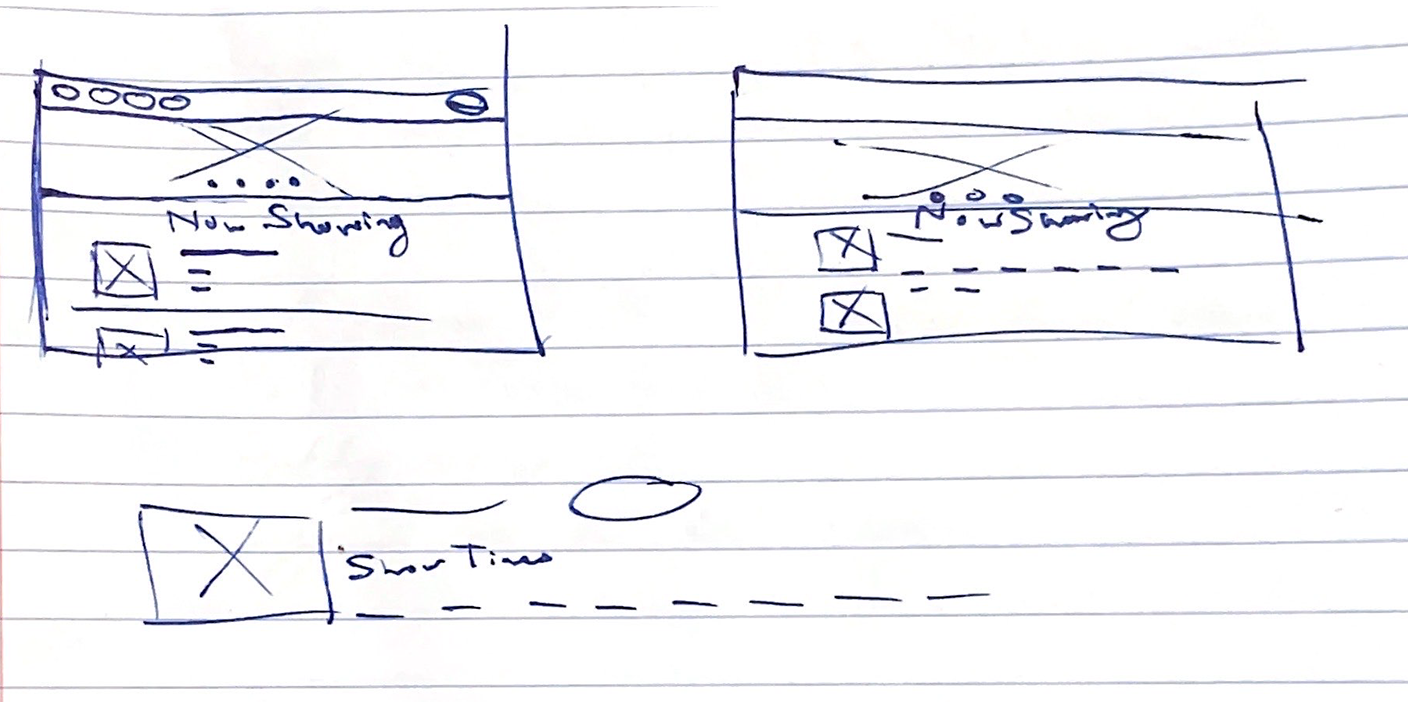 Now Showing
Now Showing
Show Times